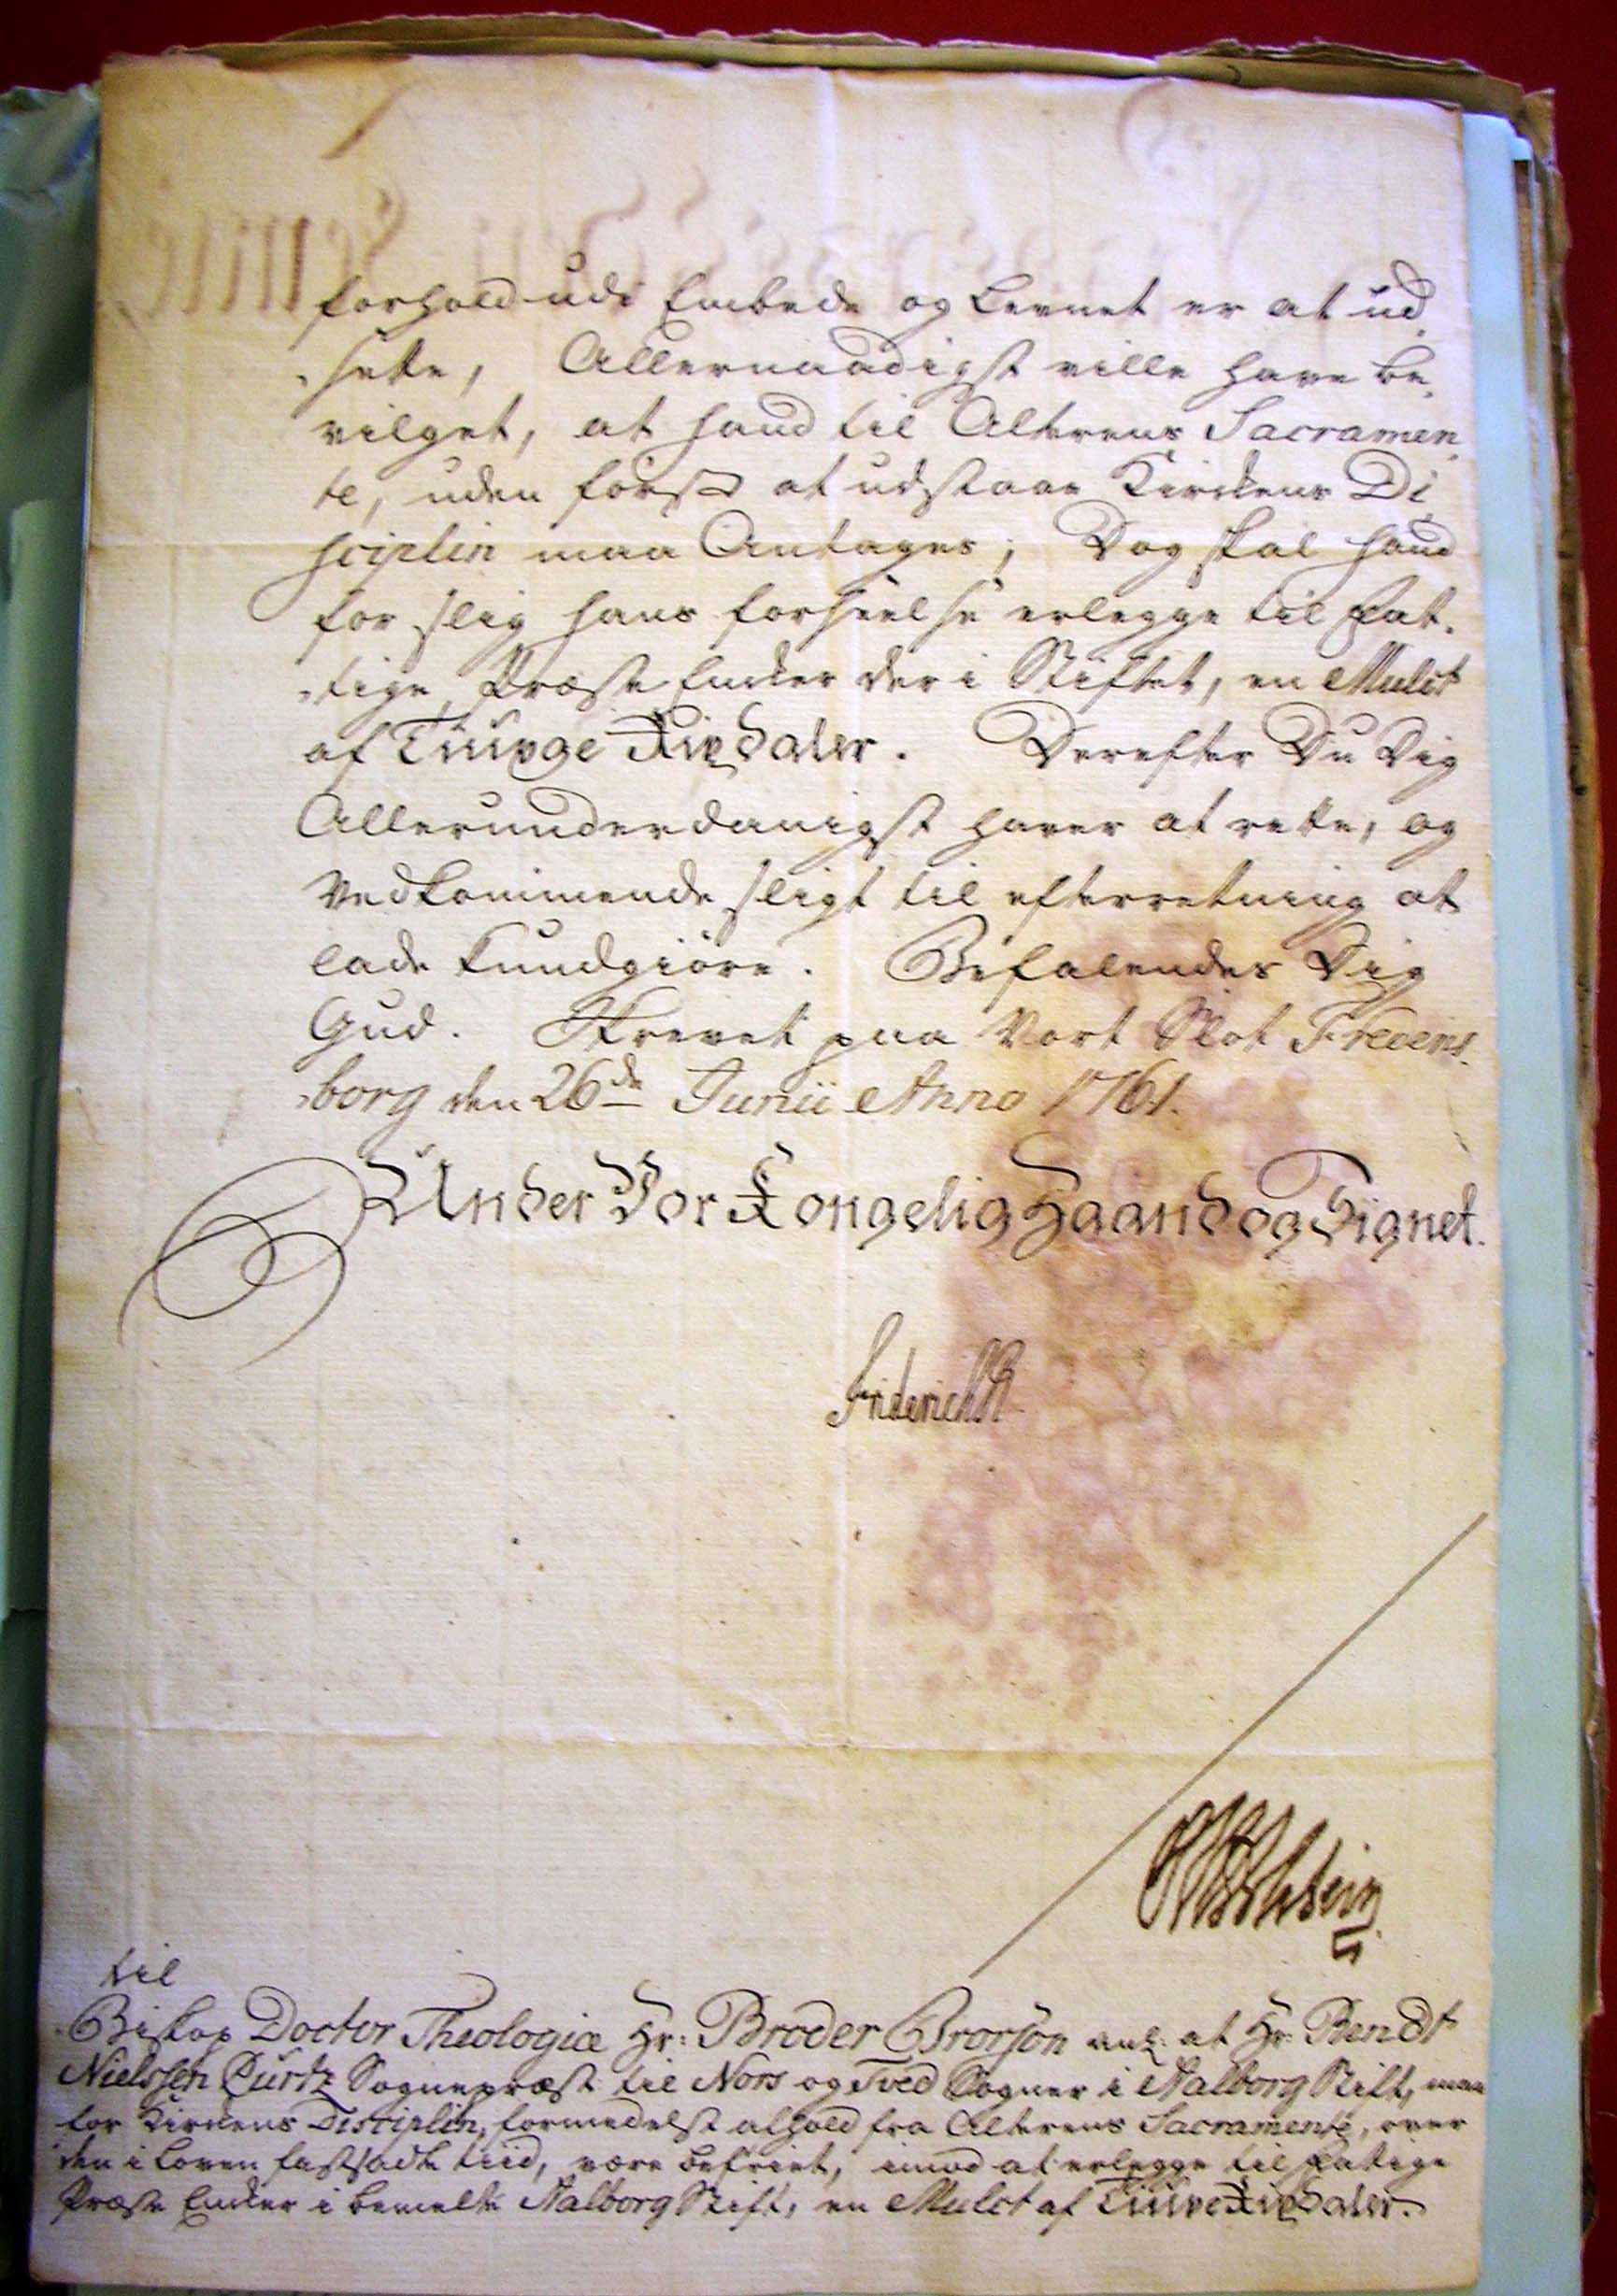 forhold udi Embede og Levnet er at ud„
„sette, Allernaadigst ville have be„
vilget, at hand til Alterens Sacramen„
te, uden først at udstaae Kirckens Di„
sciplin maa Antages; Dog skal hand
for slig hans forseelse erlegge til Fat„
„tige Præste Encker der i Stiftet, en Mulct
af Tiuvge Rixdaler. Derefter Du Dig
Allerunderdanigst haver at rette, og
Vedkommende sligt til efterretning at
lade kundgiøre. Befalendes Dig
Gud. Skrevet paa Vort Slot Fredens„
„borg den 26de Junii Anno 1761.
Under Vor Kongelig Haand og Signet.
Friderich R
til
Biskop Doctor Theologiæ Hr: Broder Brorson ang: at Hr: Bendt
Nielssen Curtz Sognepræst til Nors og Tved Sogner i Aalborg Stift, maa
for Kirckens Disciplin, formedelst afhold fra Alterens Sacramente, over
den i Loven fastsadte tiid, være befriet, imod at erlegge til Fatige
Præste Encker i bemelte Aalborg Stift, en Mulct af Tiuve Rixdaler.